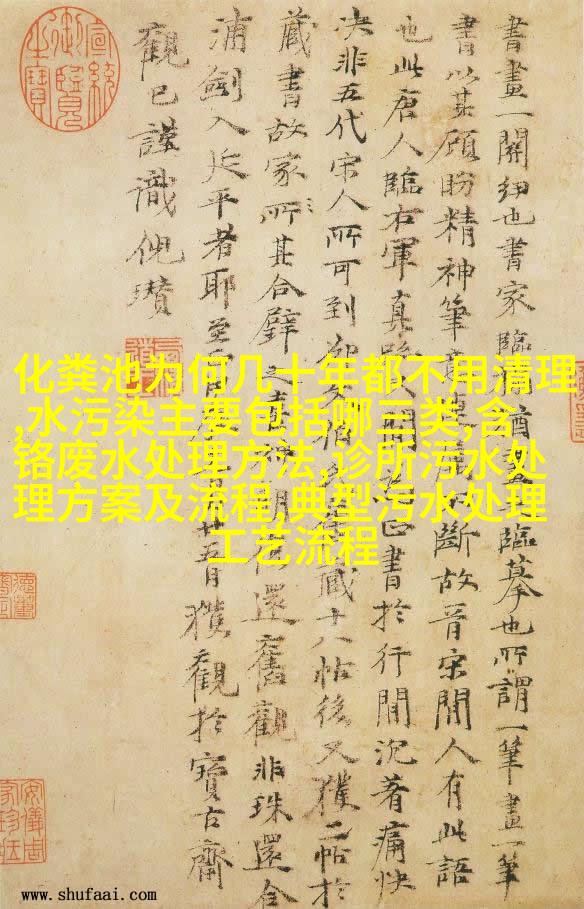 宣統御覽之寶
書畫一關紐也書家臨 臨摹也所謂一筆畫一筆
書以其顧眄精神筆意 不斷故晉宋間人有此語
也此唐人臨右軍真 人間 正書於行間沉著痛快
決非五代宋人所可到 又 藏十八帖後又獲二帖於
藏書故家所其合璧之喜神明 還舊觀非珠還合
浦劍入延平者耶至 廿五日獲觀於寶古齋
觀已謹識倪瓚
化粪池为何几十年都不用清理
,水污染主要包括哪三类,含
铬废水处理方法,诊所污水处
理方案及流程,典型污水处理
工艺流程
www.shufaai.com